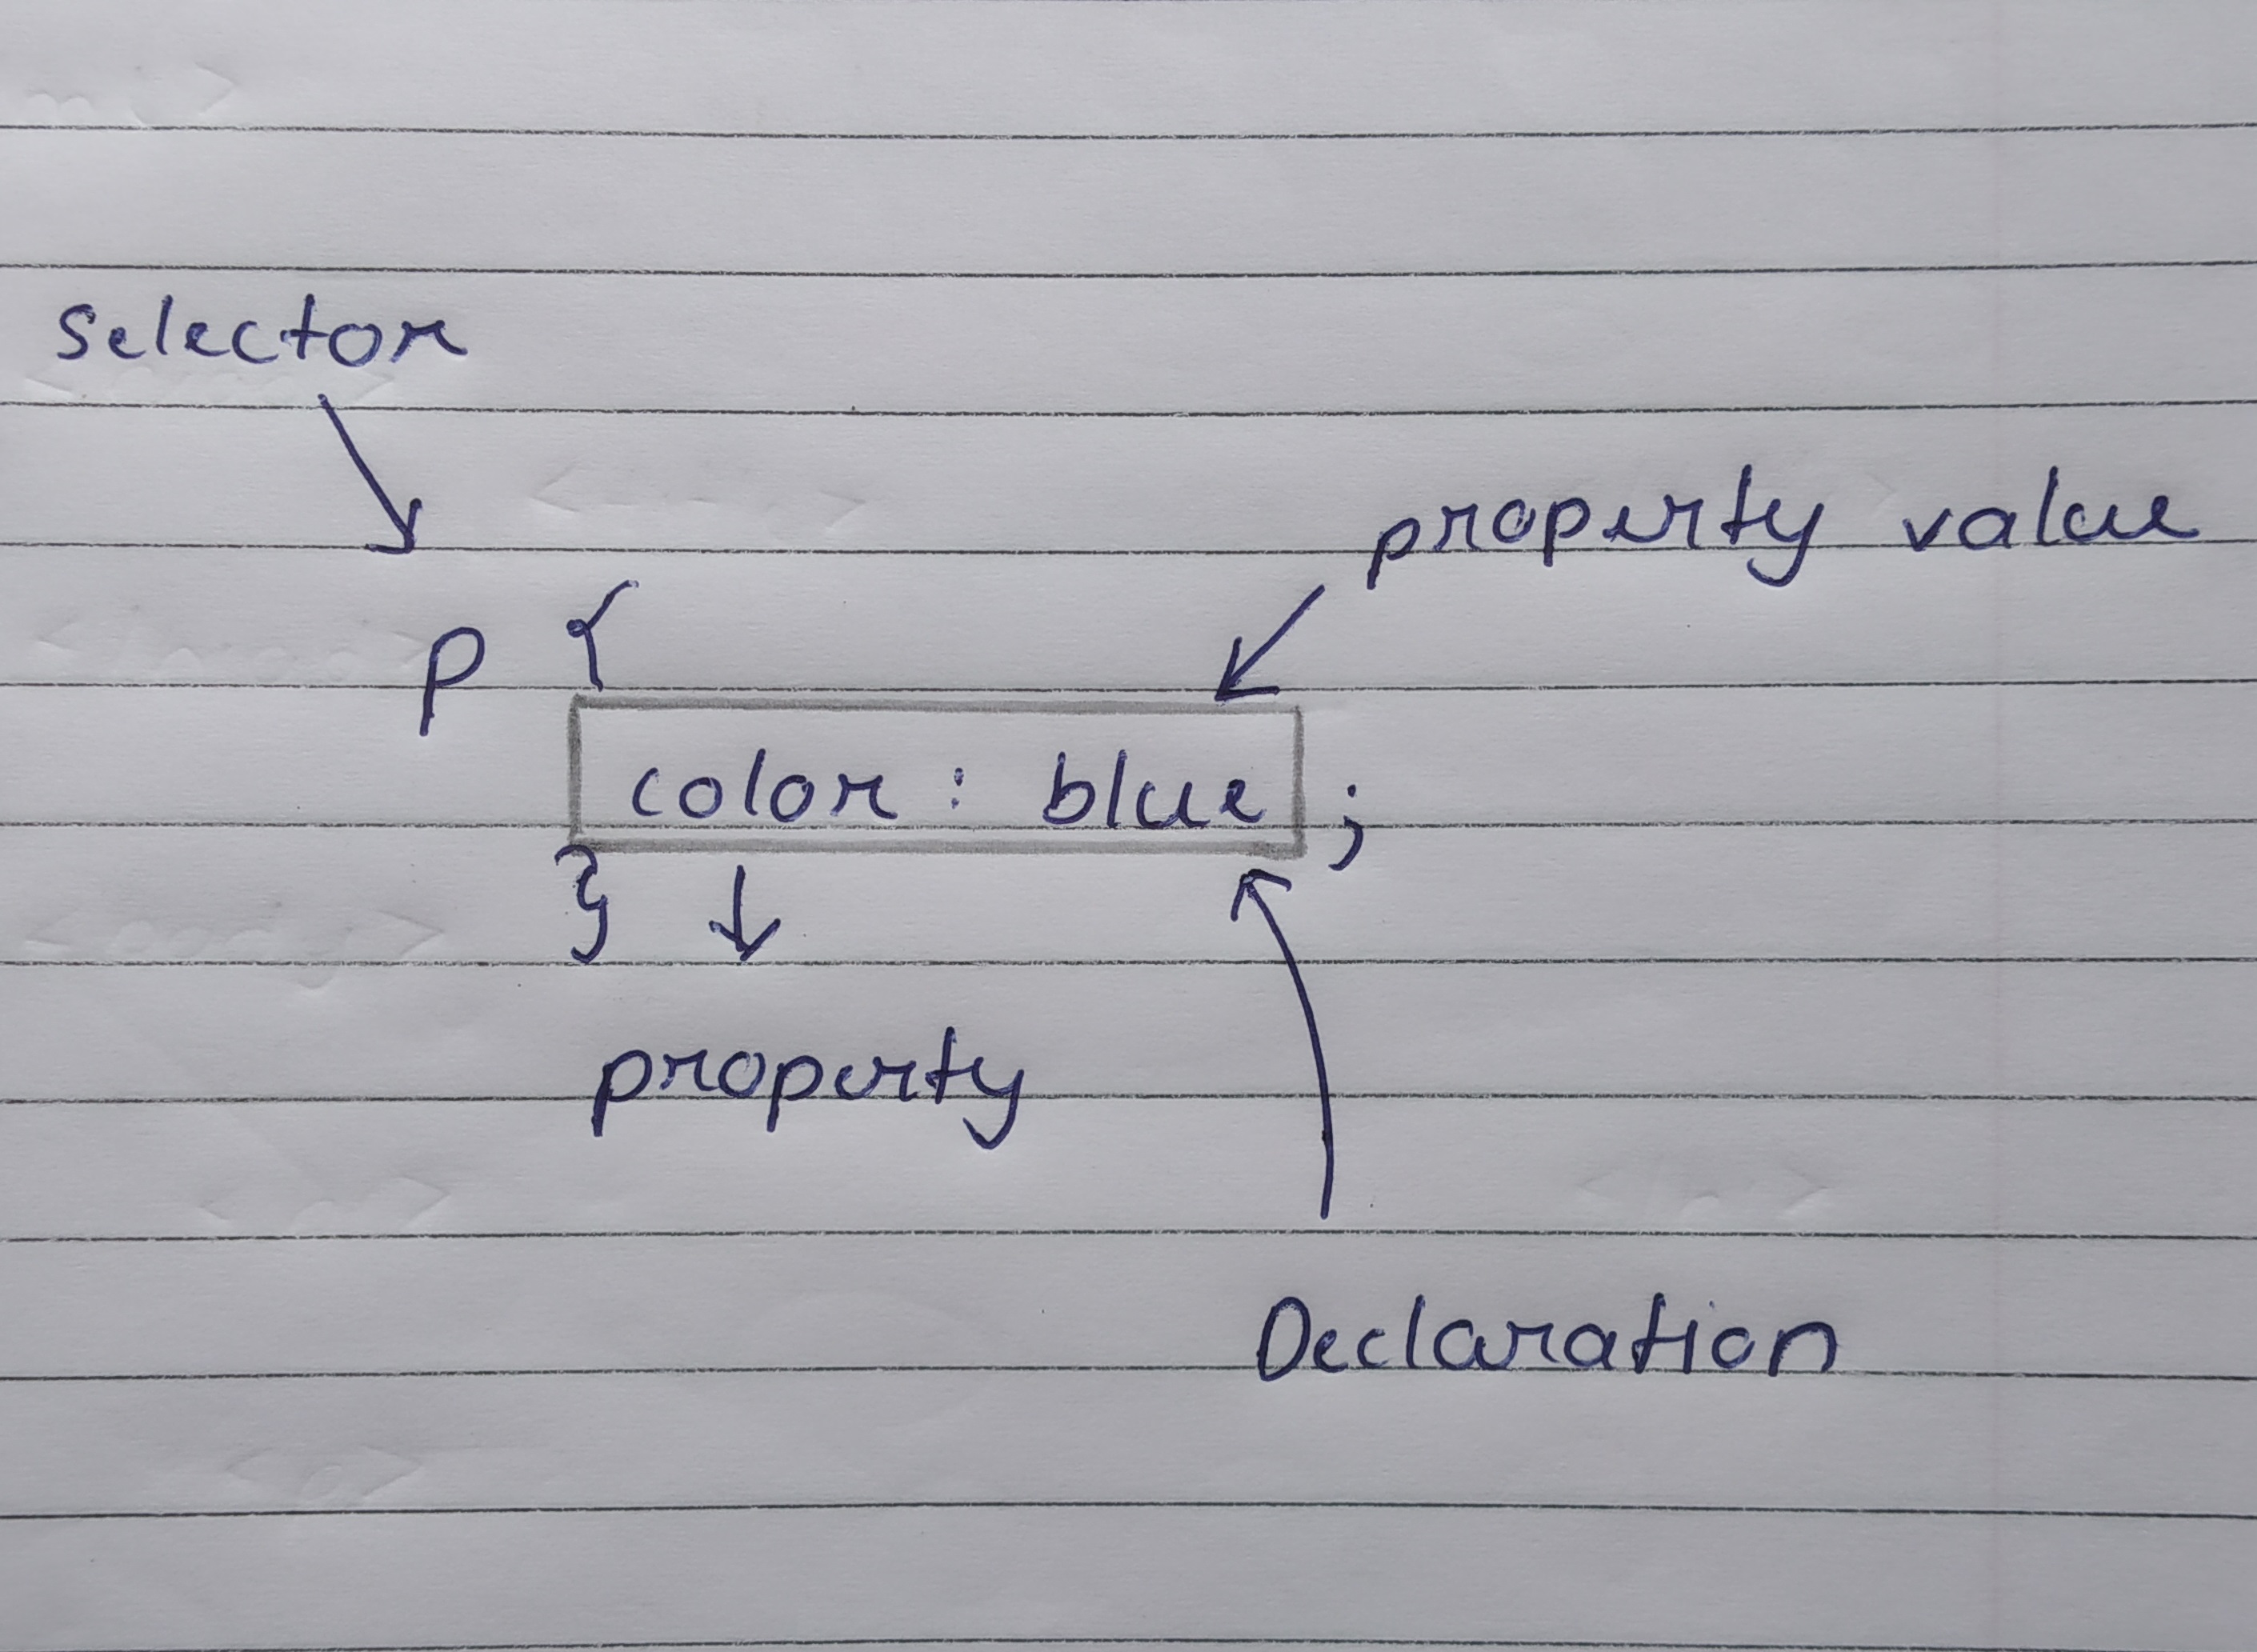 selector
property value
p {
color : blue ;
}
property
Declaration